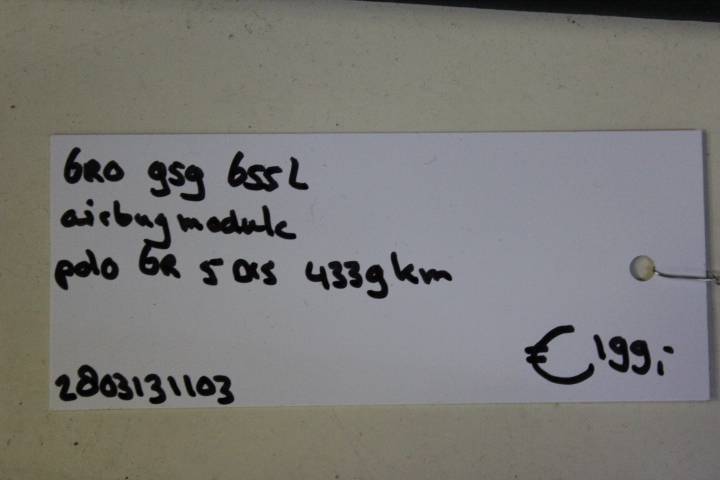 6R0 959 655 L
airbagmodule
polo 6R 5 drs 4339 km
2803131103
€199,-